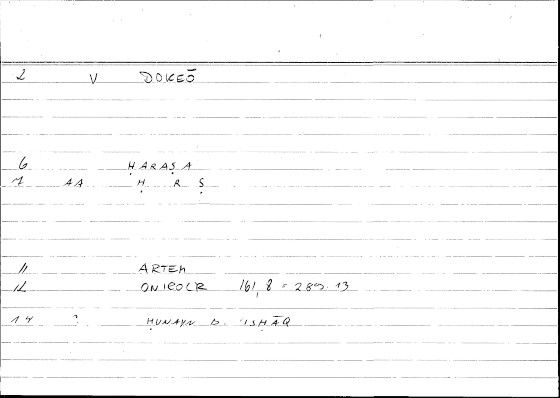 2 V DOKEŌ
6 ḤARAṢA
7 AA Ḥ R Ṣ
11 ARTEM
12 ONIROCR 161,8 = 289.13
14 ? ḤUNAYN b. 'ISḤĀQ